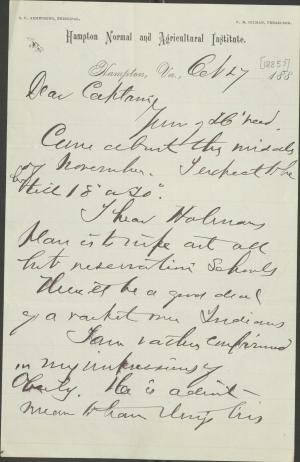 S. C. ARMSTRONG, PRINCIPAL.
F. N. GILMAN, TREASURER.
Hampton Normal and Agricultural Institute.
Hampton, Va., Oct 27 188
[1885?]
Dear Captain,
Yours of 26" rec'd.
Come about the middle
of November. I expect to be
here till 18" or 20".
I hear Holmans
plan is to wipe out all
but reservation schools
There'll be a good deal
of a racket over Indians
I am rather confirmed
in my impressions of
Oberly. He is
mean